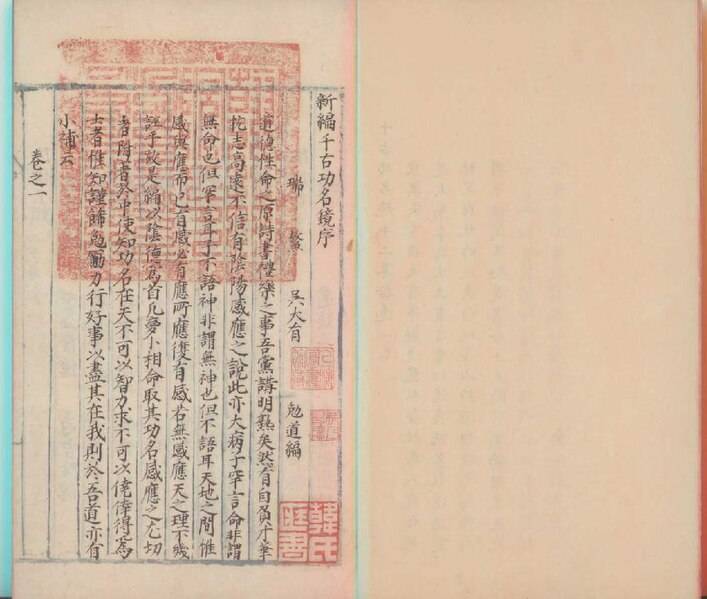 新編千古功名鏡序
瑞 吳大有 勉道編
道德性命之原詩書禮樂之事吾黨講明熟矣然有自負才辛
志高遠不信有陰陽感應之說此亦大病子罕言命非謂
無命也但罕言耳子不語神非謂無神也但不語耳天地之間惟
感與應而已有感必有應所應復有感若無感應天之理不幾
乎故是編以陰德為首凡夢卜相命取其功名感應之尤切
者附者於中使知功名在天不可以智力求不可以僥倖得為
士者惟知謹飭勉勵力行好事以盡其在我則於吾道亦有
小補云
卷之一
韓氏
藏書